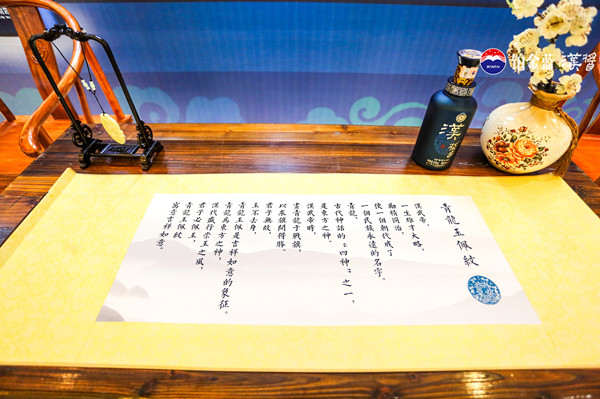 青龍玉佩紋
漢武帝，
一生雄才大略，
勵精圖治，
使一個朝代成了
一個民族永遠的名字。
青龍，
古代神話的“四神”之一，
是東方之神。
漢武帝時，
畫青龍于戰旗，
以求旗開得勝。
君子無故，
玉不去身，
青龍玉佩是吉祥如意的象征。
青龍為東方之神，
漢代盛行崇玉之風，
君子必佩玉，
青龍玉佩紋
寓意吉祥如意。
漢醬
漢醬